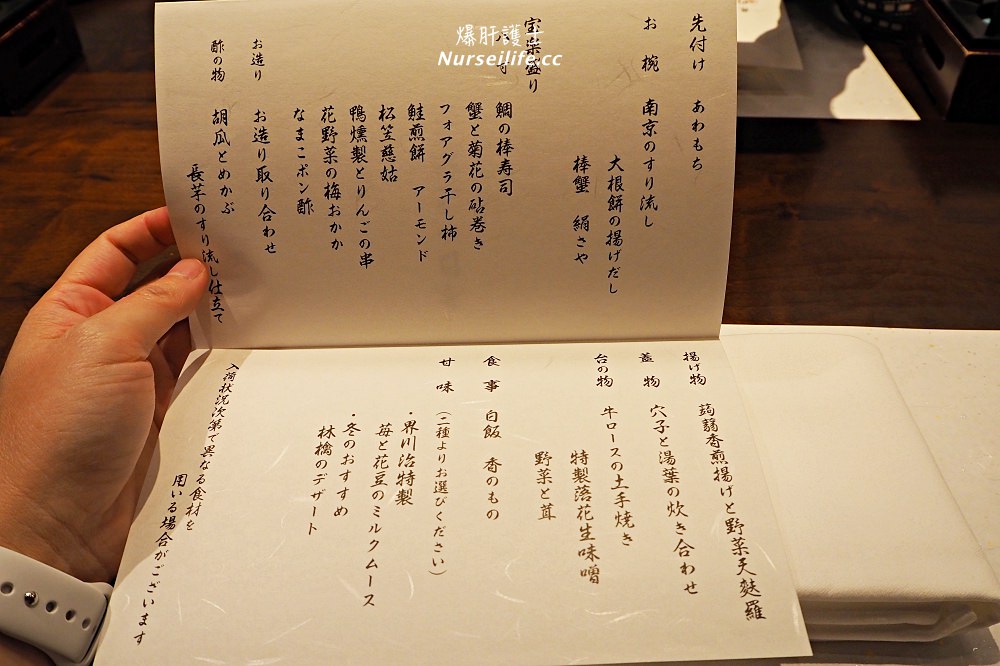 爆肝護士
Nurseilife.cc
先付け　あわもち
お椀　南京のすり流し
大根餅の揚げだし
棒蟹　絹さや
宝楽盛り
鯛の棒寿司
蟹と菊花の砧巻き
フォアグラ干し柿
鮭煎餅　アーモンド
松笠慈姑
鴨燻製とりんごの串
花野菜の梅おかか
なまこポン酢
お造り　お造り取り合わせ
酢の物　胡瓜とめかぶ
長芋のすり流し仕立て
揚げ物　蒟蒻香煎揚げと野菜天麩羅
蓋物　穴子と湯葉の炊き合わせ
台の物　牛ロースの土手焼き
特製落花生味噌
野菜と茸
食事　白飯　香のもの
甘味　(二種よりお選びください)
・界川治特製
苺と花豆のミルクムース
・冬のおすすめ
林檎のデザート
入荷状況次第で異なる食材を
用いる場合がございます